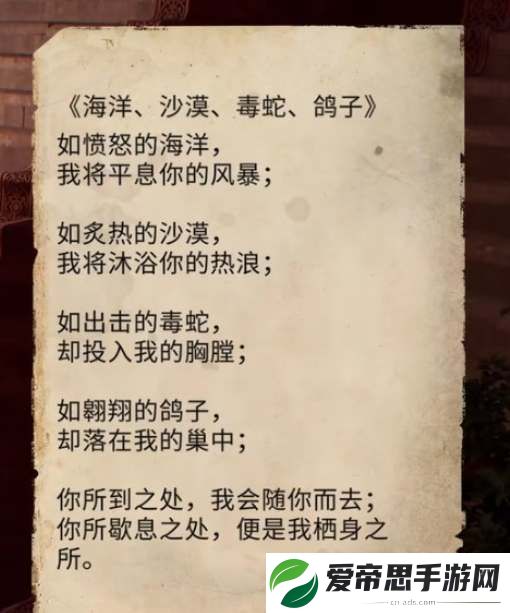 《海洋、沙漠、毒蛇、鸽子》
如愤怒的海洋，
我将平息你的风暴；
如炙热的沙漠，
我将沐浴你的热浪；
如出击的毒蛇，
却投入我的胸膛；
如翱翔的鸽子，
却落在我的巢中；
你所到之处，我会随你而去；
你所歇息之处，便是我栖身之
所。
爱帝思手游网
cn-ads.com